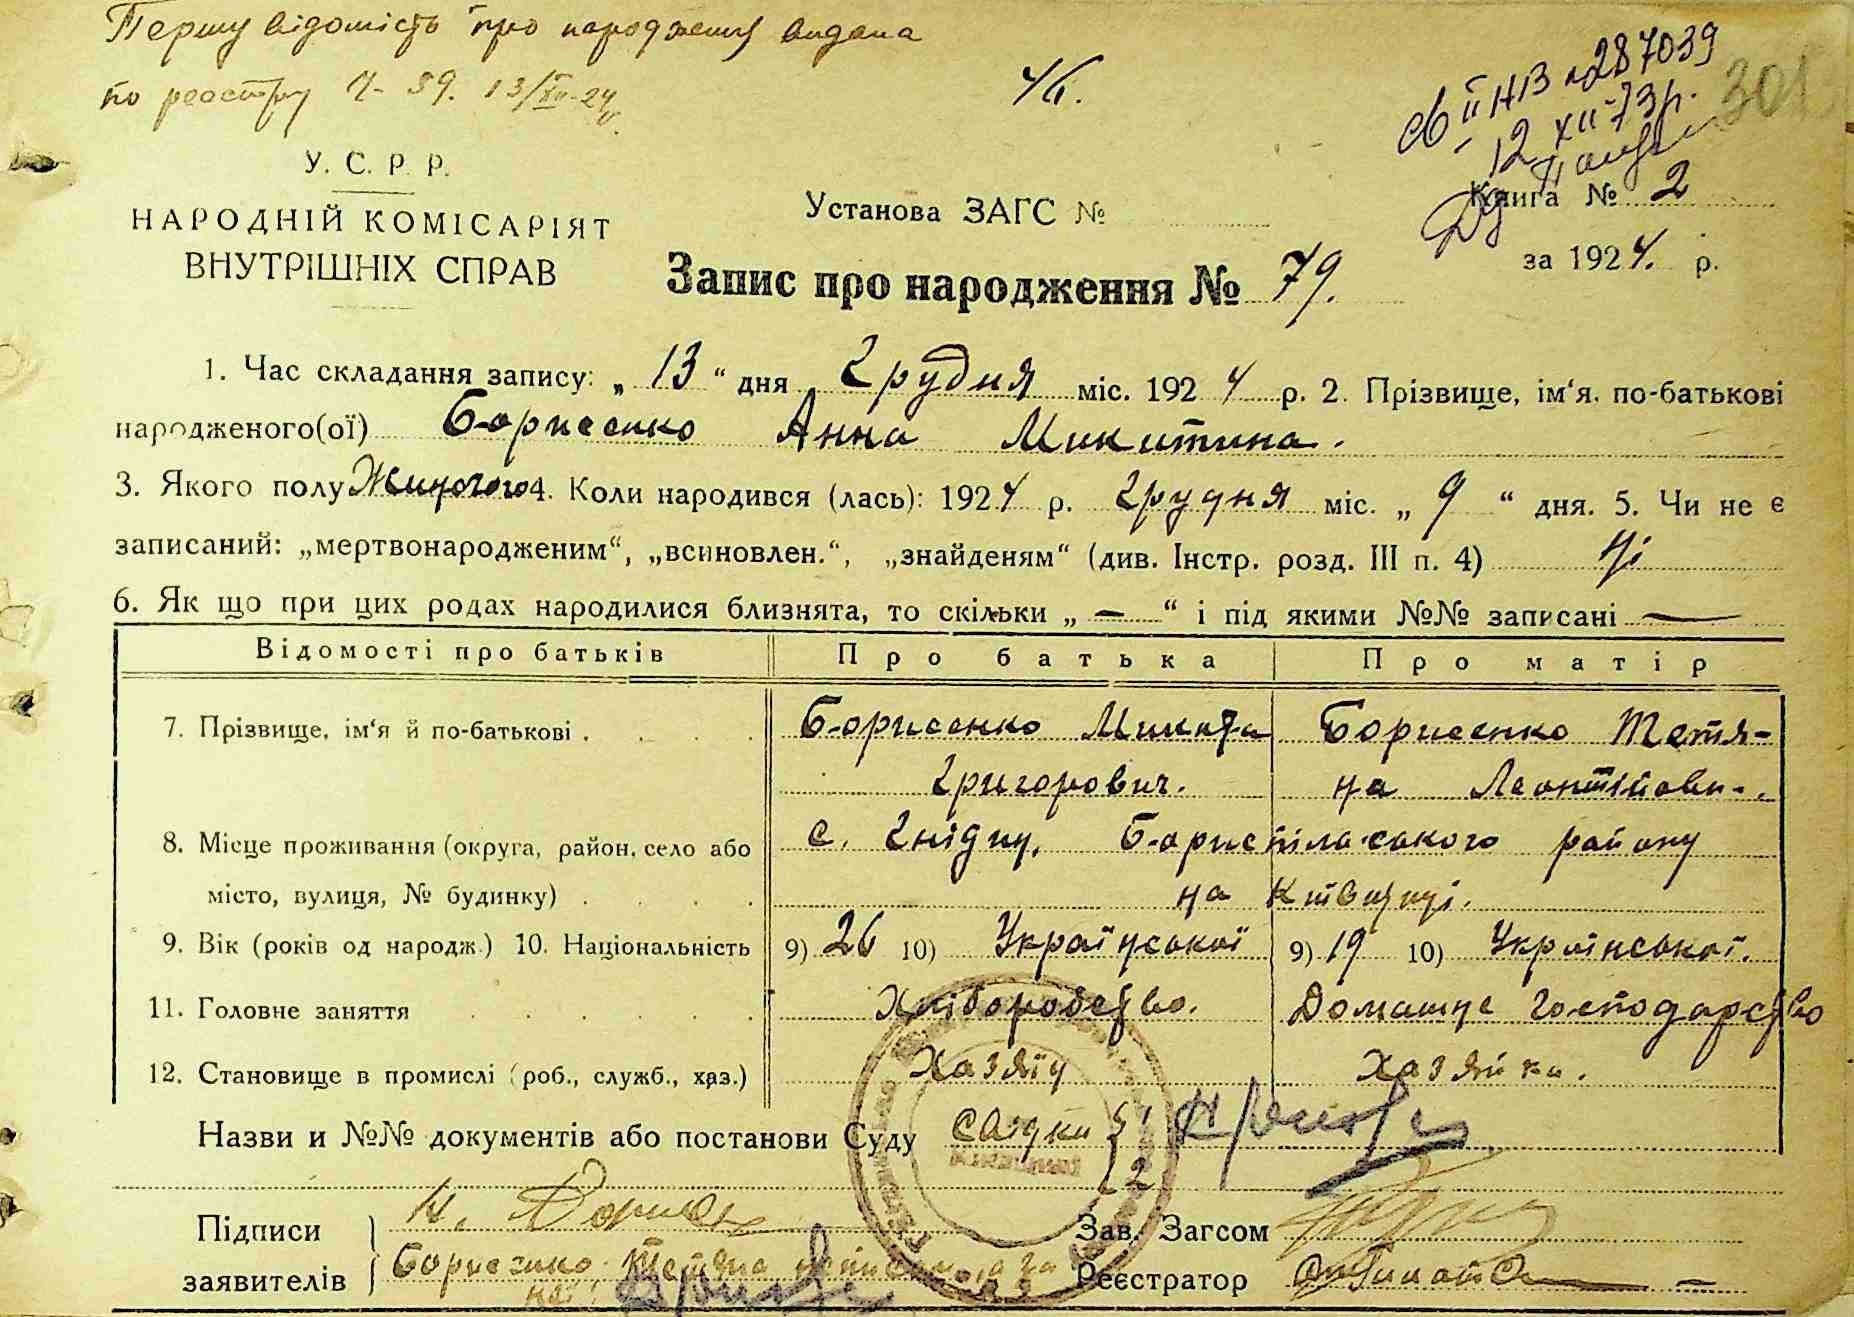 Першу відомість про народження видана
по реєстру Ч- 59. 13/XII-24 р.
св II НВ №287039
12 XII-73р.
301
У. С. Р. Р.
НАРОДНІЙ КОМІСАРІЯТ
ВНУТРІШНІХ СПРАВ
Установа ЗАГС №
Книга № 2
за 1924. р.
Запис про народження № 79.
1. Час складання запису: „ 13 “ дня Грудня міс. 1924 р. 2. Прізвище, ім‘я, по-батькові
народженого(ої) Борисенко Анна Микитина.
3. Якого полу Жиночого 4. Коли народився (лась): 1924 р. Грудня міс. „ 9 “ дня. 5. Чи не є
записаний: „мертвонародженим“, „всиновлен.“, „знайденям“ (див. Інстр. розд. III п. 4) Ні
6. Як що при цих родах народилися близнята, то скільки „ — “ і під якими №№ записані —
Відомості про батьків Про батька Про матір
7. Прізвище, ім‘я й по-батькові . Борисенко Микита Борисенко Тетя-
Григорович. на Леонтійовн.
8. Місце проживання (округа, район, село або с. Гнідин, Бориспільського району
місто, вулиця, № будинку) на Київщині.
9. Вік (років од народж.) 10. Національність 9) 26 10) Української 9) 19 10) Української.
11. Головне заняття Хліборобство. Домашнє господарство
12. Становище в промислі (роб., служб., хаз.) Хазяїн Хазяйка.
Назви и №№ документів або постанови Суду
Підписи
Зав. Загсом
заявителів Борисенко Тетяна
Реєстратор